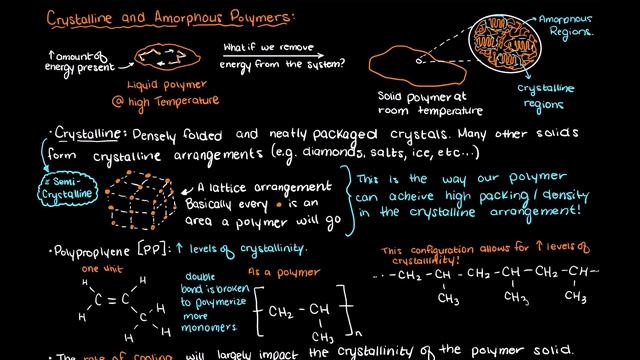 Crystalline and Amorphous Polymers:
↑ amount of
energy present
Liquid polymer
@ high Temperature
What if we remove
energy from the system?
Solid polymer at
room temperature
Amorphous
Regions.
Crystalline
regions
• Crystalline: Densely folded and neatly packaged crystals. Many other solids
form crystalline arrangements (e.g. diamonds, salts, ice, etc...)
= Semi-
Crystalline
A lattice arrangement
Basically every • is an
area a polymer will go
This is the way our polymer
can acheive high packing/density
in the crystalline arrangement!
• Polyproplyene [PP]: ↑ levels of crystallinity.
one unit
H H
C=C
H C-H
H H
double
bond is broken
to polymerize
more
monomers.
As a polymer
[CH₂-CH]n
CH₃
This configuration allows for ↑ levels of
crystallinity!
...-CH₂-CH-CH₂-CH-CH₂-CH-...
CH₃ CH₃ CH₃
• The rate of cooling will largely impact the crystallinity of the polymer solid.